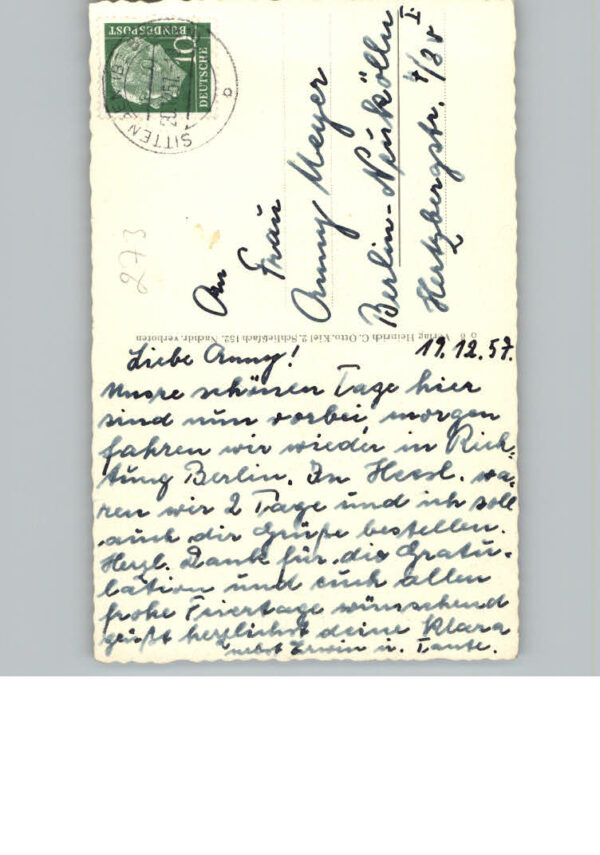 DEUTSCHE
BUNDESPOST
10
SITTENSEN
273
An
Frau
Anny Meyer
Berlin-Neukölln I
Hertzbergstr. 4/5
Verlag Heinrich C. Otto, Kiel 2, Schließfach 152. Nachdr. verboten
19.12.57.
Liebe Anny!
Unsre schönen Tage hier
sind nun vorbei, morgen
fahren wir wieder in Rich-
tung Berlin. In Heesl. wa-
ren wir 2 Tage und ich soll
auch dir Grüße bestellen.
Herzl. Dank für die Gratu-
lation und euch allen
frohe Feiertage wünschend
grüßt herzlichst deine Klara
nebst Erwin u. Tante.